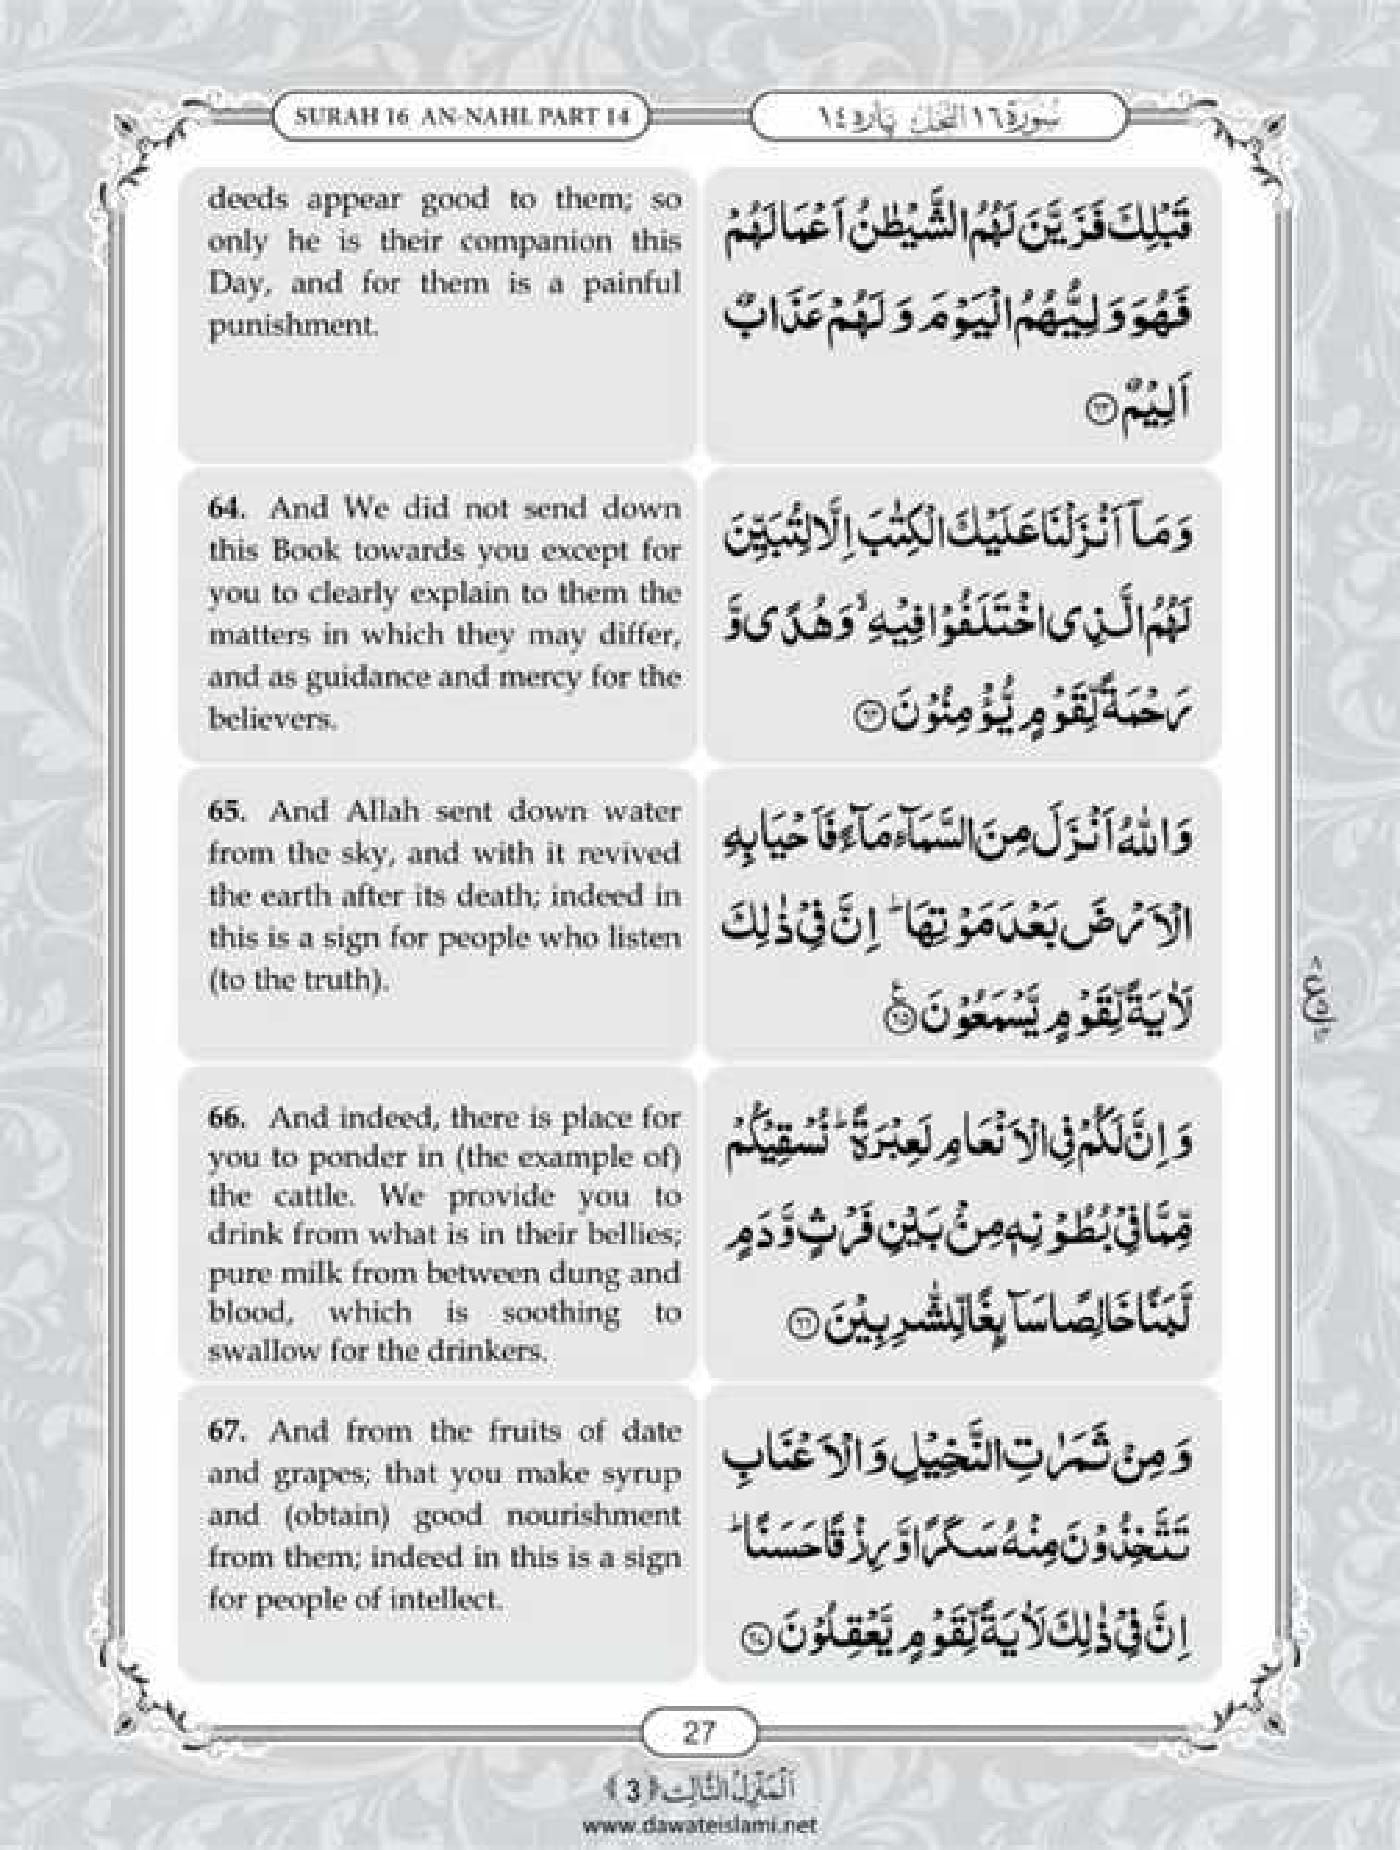 SURAH 16 AN-NAHL PART 14
سُوْرَةُ ١٦ النَّحْل پارہ ١٤
deeds appear good to them; so
only he is their companion this
Day, and for them is a painful
punishment.
قَبْلِكَ فَزَيَّنَ لَهُمُ الشَّيْطٰنُ اَعْمَالَهُمْ
فَهُوَ وَلِيُّهُمُ الْيَوْمَ وَ لَهُمْ عَذَابٌ
اَلِيْمٌ ﴿۶۳﴾
64. And We did not send down
this Book towards you except for
you to clearly explain to them the
matters in which they may differ,
and as guidance and mercy for the
believers.
وَ مَاۤ اَنْزَلْنَا عَلَيْكَ الْكِتٰبَ اِلَّا لِتُبَيِّنَ
لَهُمُ الَّذِی اخْتَلَفُوْا فِيْهِ ۙ وَ هُدًی وَّ
رَحْمَةً لِّقَوْمٍ يُّؤْمِنُوْنَ ﴿۶۴﴾
65. And Allah sent down water
from the sky, and with it revived
the earth after its death; indeed in
this is a sign for people who listen
(to the truth).
وَ اللّٰهُ اَنْزَلَ مِنَ السَّمَآءِ مَآءً فَاَحْيَا بِهِ
الْاَرْضَ بَعْدَ مَوْتِهَا ؕ اِنَّ فِیْ ذٰلِكَ
لَاٰيَةً لِّقَوْمٍ يَّسْمَعُوْنَ ﴿۶۵﴾ ع
66. And indeed, there is place for
you to ponder in (the example of)
the cattle. We provide you to
drink from what is in their bellies;
pure milk from between dung and
blood, which is soothing to
swallow for the drinkers.
وَ اِنَّ لَكُمْ فِی الْاَنْعَامِ لَعِبْرَةً ؕ نُسْقِيْكُمْ
مِّمَّا فِیْ بُطُوْنِهٖ مِنْۢ بَيْنِ فَرْثٍ وَّ دَمٍ
لَّبَنًا خَالِصًا سَآىِٕغًا لِّلشّٰرِبِيْنَ ﴿۶۶﴾
67. And from the fruits of date
and grapes; that you make syrup
and (obtain) good nourishment
from them; indeed in this is a sign
for people of intellect.
وَ مِنْ ثَمَرٰتِ النَّخِيْلِ وَ الْاَعْنَابِ
تَتَّخِذُوْنَ مِنْهُ سَكَرًا وَّ رِزْقًا حَسَنًا ؕ
اِنَّ فِیْ ذٰلِكَ لَاٰيَةً لِّقَوْمٍ يَّعْقِلُوْنَ ﴿۶۷﴾
27
اَلْمَنْزِلُ الثَّالِث ﴿3﴾
www.dawateislami.net